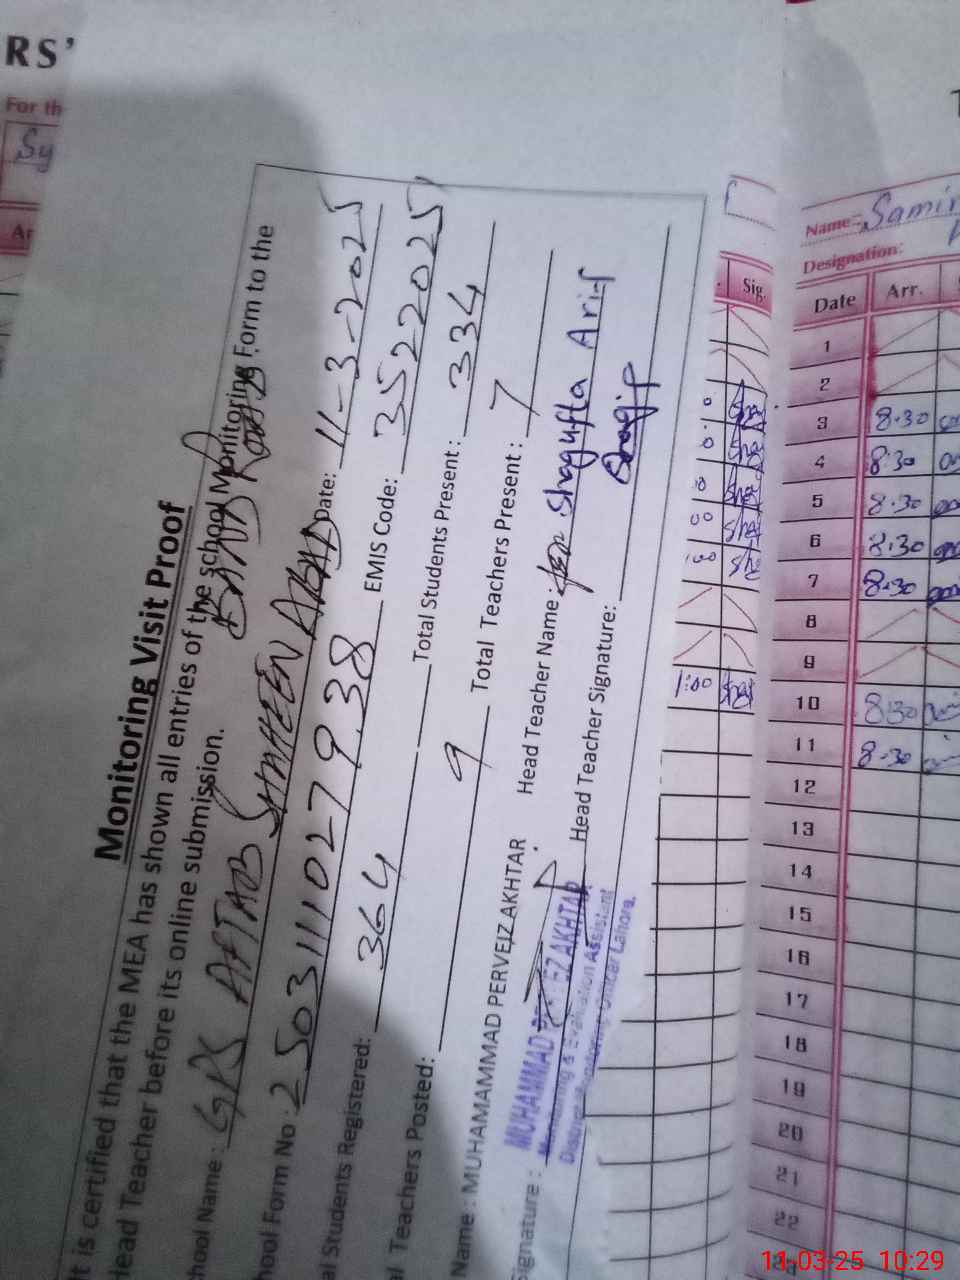 RS'
For th
Sy
Ar
Monitoring Visit Proof
It is certified that the MEA has shown all entries of the school Monitoring Form to the
Head Teacher before its online submission.
hool Name : GPS AFTAB SHAHEEN ABAD BAND ROAD Date: 11-3-2025
hool Form No : 2503111027938 EMIS Code: 3522025
al Students Registered: 364 Total Students Present : 334
al Teachers Posted: 9 Total Teachers Present : 7
Name : MUHAMAMMAD PERVEIZ AKHTAR Head Teacher Name : Shagufta Arif
ignature : Head Teacher Signature:
MUHAMMAD PERVEIZ AKHTAR
Monitoring & Evaluation Assistant
District Monitoring Officer Lahore.
Sig.
1:00
Name:- Samin
Designation:
Date Arr.
1
2
3 8.30
4 8.30
5 8.30
6 8.30
7 8.30
8
9
10 8:30
11 8.30
12
13
14
15
16
17
18
19
20
21
22
11-03-25 10:29